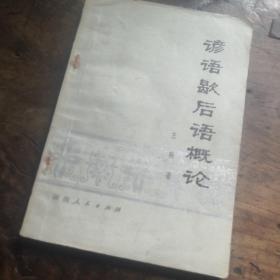 谚语歇后语概论
王勤著
湖南人民出版社